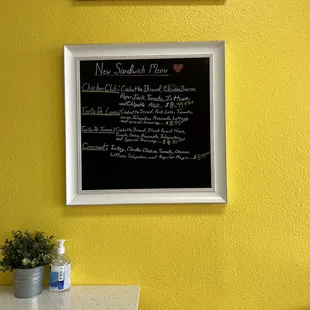 New Sandwich Menu
Chicken Club: Ciabatta Bread, Chicken, Bacon,
Pepper Jack, Tomato, Lettuce,
and Chipotle Mayo. - $8.99
Torta de Lomo: Ciabatta Bread, Pork Loin, Tomato,
Onion, Jalapeños, Avocado, Lettuce,
and Special Dressing - $8.50
Torta de Jamon: Ciabatta Bread, Black Forest Ham,
Tomato, Onion, Jalapeños, Avocado
and Special Dressing - $8.50
Croissant: Turkey, Cheese, Tomato, Onion,
Lettuce, Jalapeños, and Regular Mayo - $8